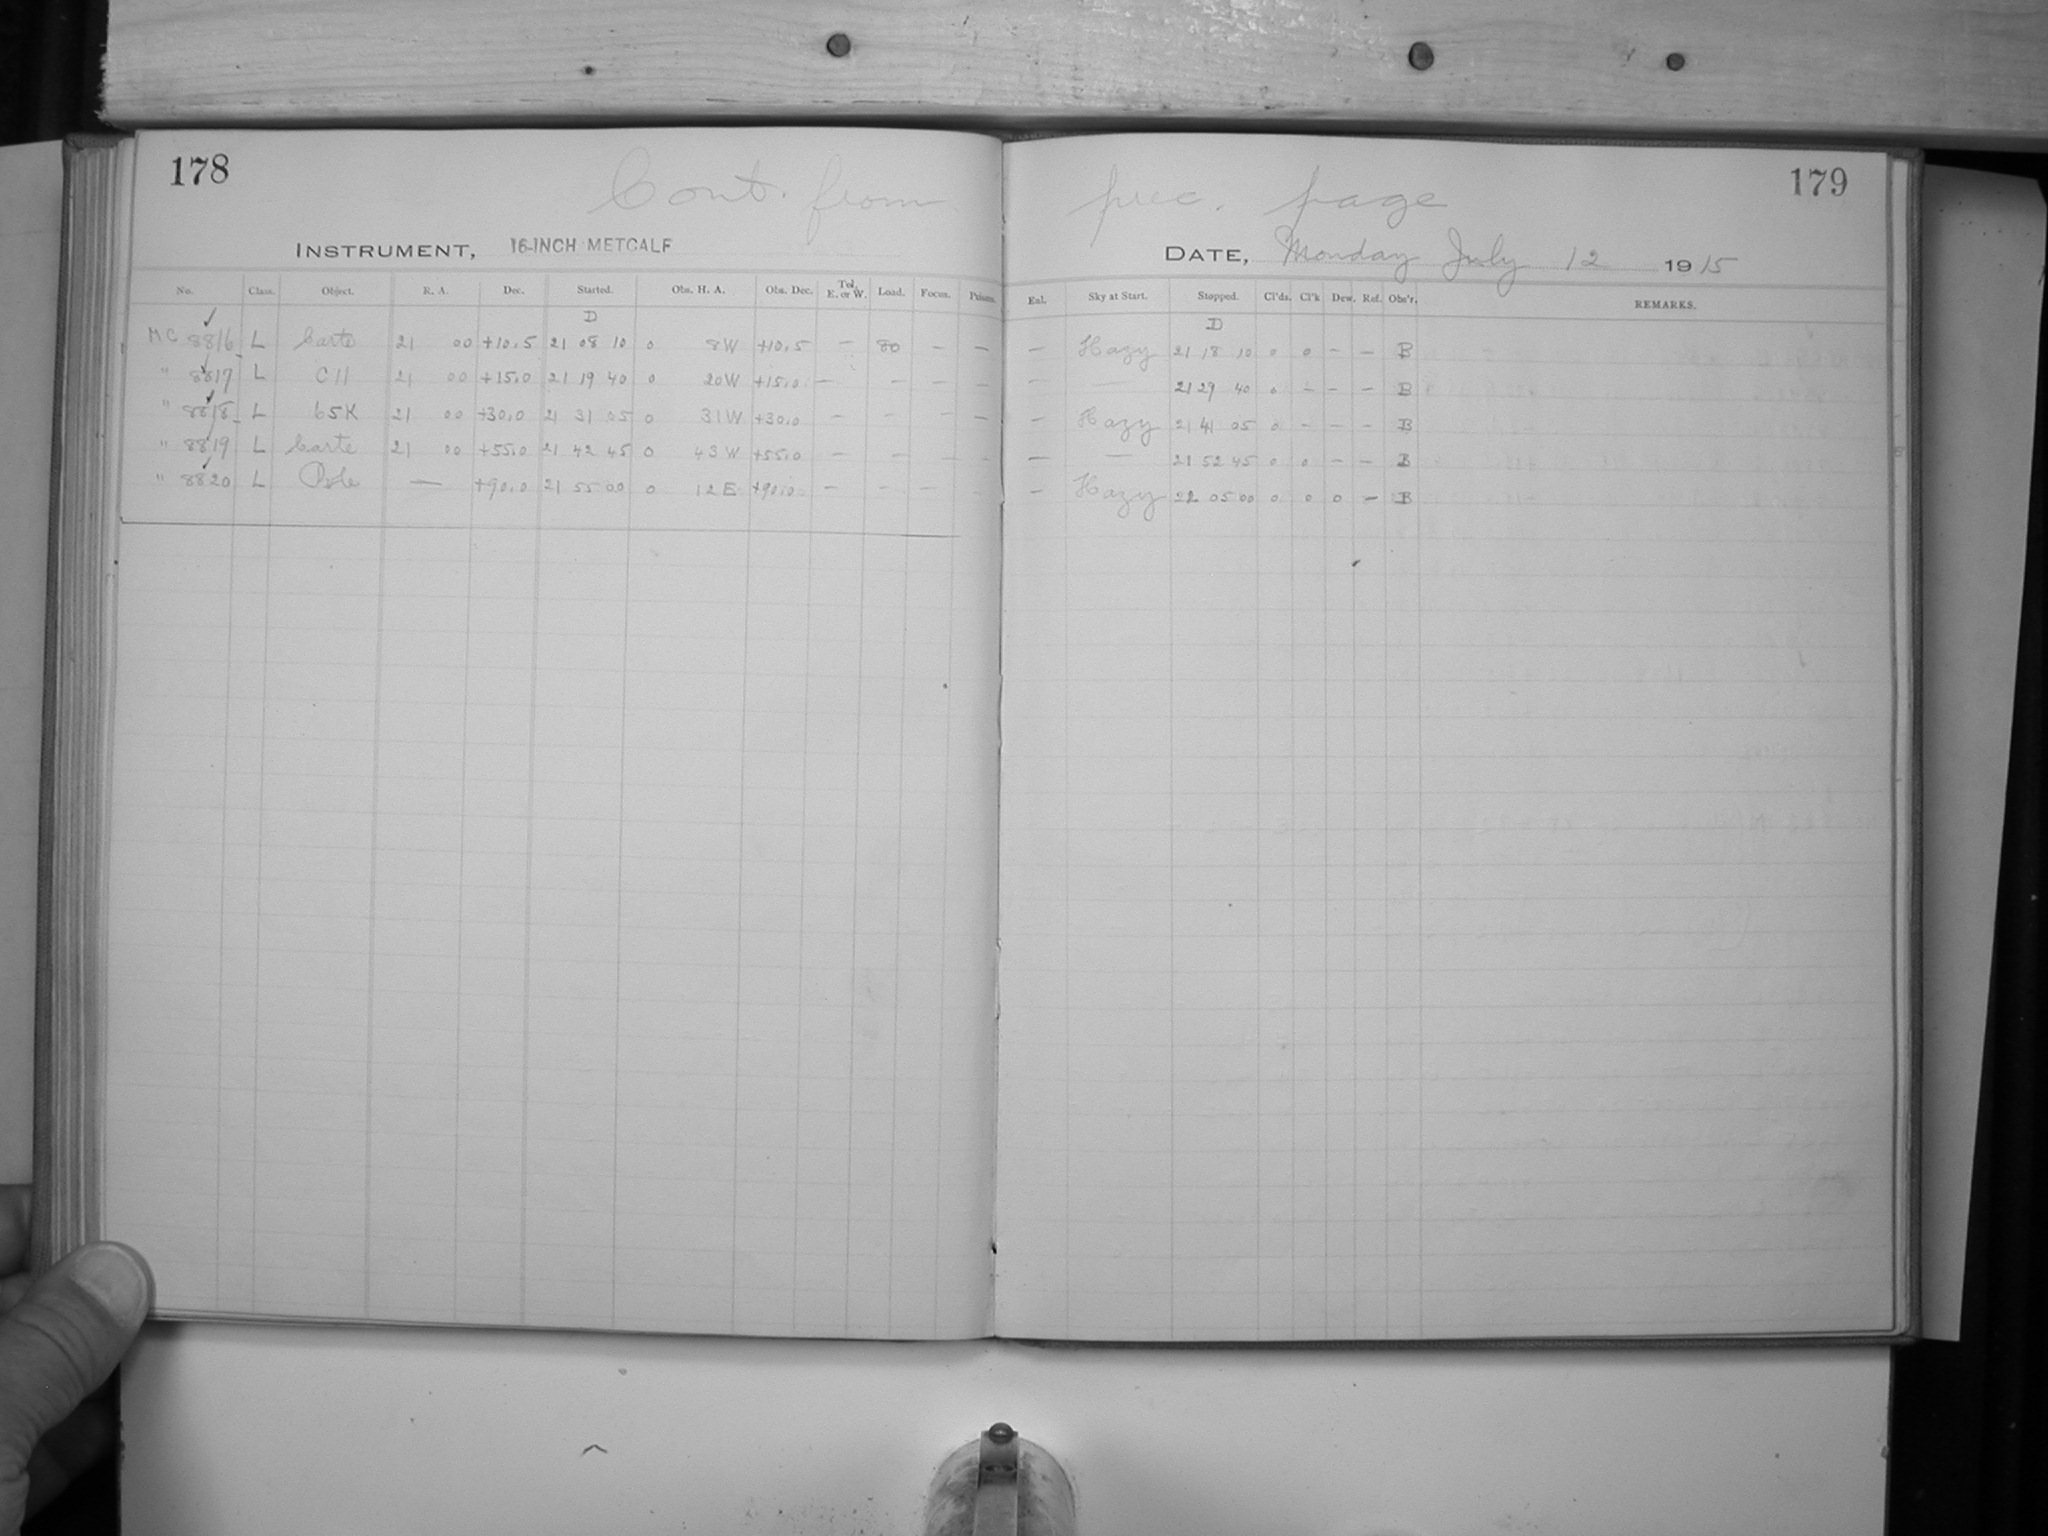 178
Cont. from prec. page
179
INSTRUMENT, 16-INCH METCALF
DATE, Monday July 12 1915
No. Class. Object. R. A. Dec. Started. Obs. H. A. Obs. Dec. Tel. E. or W. Load. Focus. Prisms. Eal. Sky at Start. Stopped. Cl'ds. Cl'k Dew. Ref. Obs'r. REMARKS.
D D
MC 8816 L Carte 21 00 +10.5 21 08 10 0 8W +10.5 - 80 - - - Hazy 21 18 10 0 0 - - B
" 8817 L C11 21 00 +15.0 21 19 40 0 20W +15.0 - - - - - — 21 29 40 0 - - - B
" 8818 L 65K 21 00 +30.0 21 31 05 0 31W +30.0 - - - - - Hazy 21 41 05 0 - - - B
" 8819 L Carte 21 00 +55.0 21 42 45 0 43W +55.0 - - - - - — 21 52 45 0 0 - - B
" 8820 L Pole — +90.0 21 55 00 0 12E +90.0 - - - - - Hazy 22 05 00 0 0 0 - B